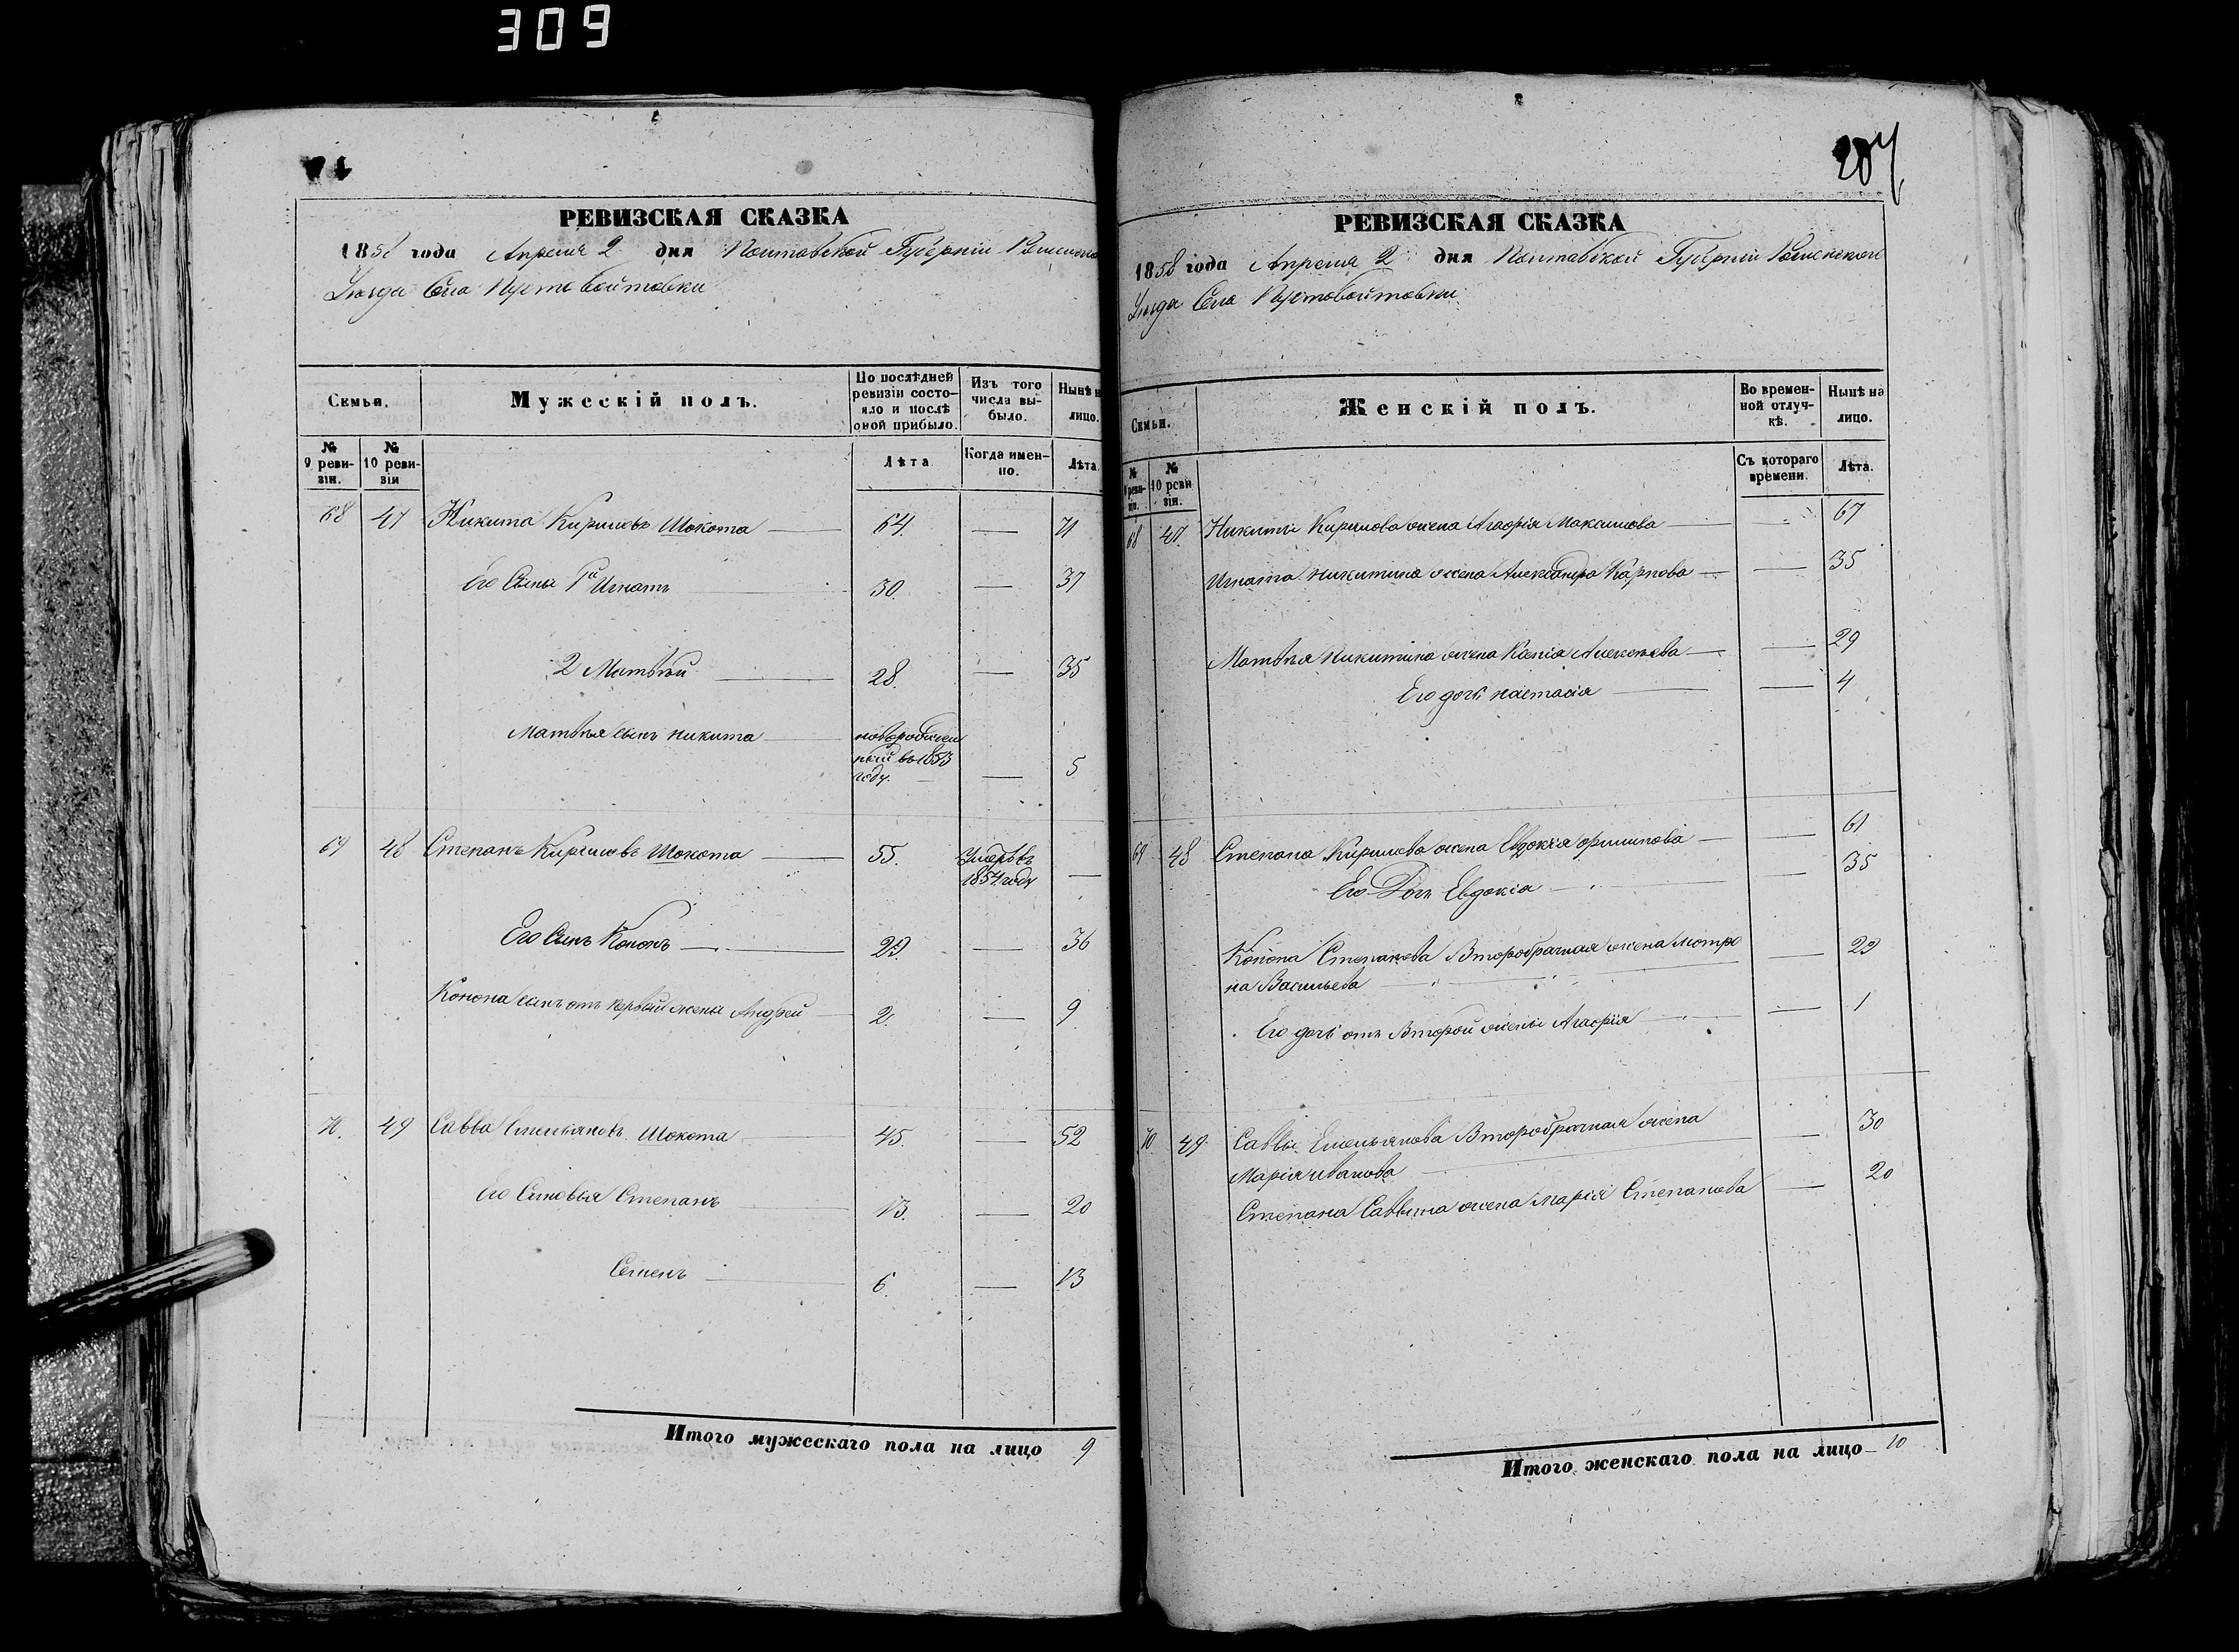 309
РЕВИЗСКАЯ СКАЗКА
1858 года Апреля 2 дня Полтавской Губерніи Роменскаго
Уѣзда Села Пустовойтовки
Семьи.
Мужескій полъ.
По послѣдней ревизіи состояло и послѣ оной прибыло.
Изъ того числа выбыло.
Нынѣ на лицо.
№ 9 ревизіи.
№ 10 ревизіи
Лѣта
Когда именно.
Лѣта.
68 47 Никита Кириловъ Шокота 64. — 71
Его Сыны 1й Игнатъ 30. — 37
2 Матвѣй 28. — 35
Матвѣя сынъ никита
новорожден
ный въ 1853
году. — 5
69 48 Степанъ Кириловъ Шокота 55. Умеръ въ
1854 году —
Его Сынъ Кононъ 29. — 36
Конона сынъ отъ первой жены Андрей 2. — 9
70. 49 Савва Емельяновъ Шокота 45. — 52
Его Сыновья Степанъ 13. — 20
Семенъ 6. — 13
Итого мужескаго пола на лицо 9
207
РЕВИЗСКАЯ СКАЗКА
1858 года Апреля 2 дня Полтавской Губерніи Роменскаго
Уѣзда Села Пустовойтовки
Семьи.
Женскій полъ.
Во временной отлучкѣ.
Нынѣ на лицо.
№ 9 ревизіи.
№ 10 ревизіи.
Съ котораго времени.
Лѣта.
68 47. Никиты Кирилова жена Агафія Максимова — 67
Игната никитина жена Александра Карпова — 35
Матвѣя никитина жена Ксенія Алексѣева — 29
Его дочь настасія — 4
69 48 Степана Кирилова жена Евдокія филипова — 61
Его Дочь Евдокіа — 35
Конона Степанова Второбрачная жена мотро — 29
на Васильева
Его дочь отъ Второй жены Агафія — 1
70 49. Саввы Емельянова Второбрачная жена — 30
Марія иванова
Степана Саввина жена Марія Степанова — 20
Итого женскаго пола на лицо — 10